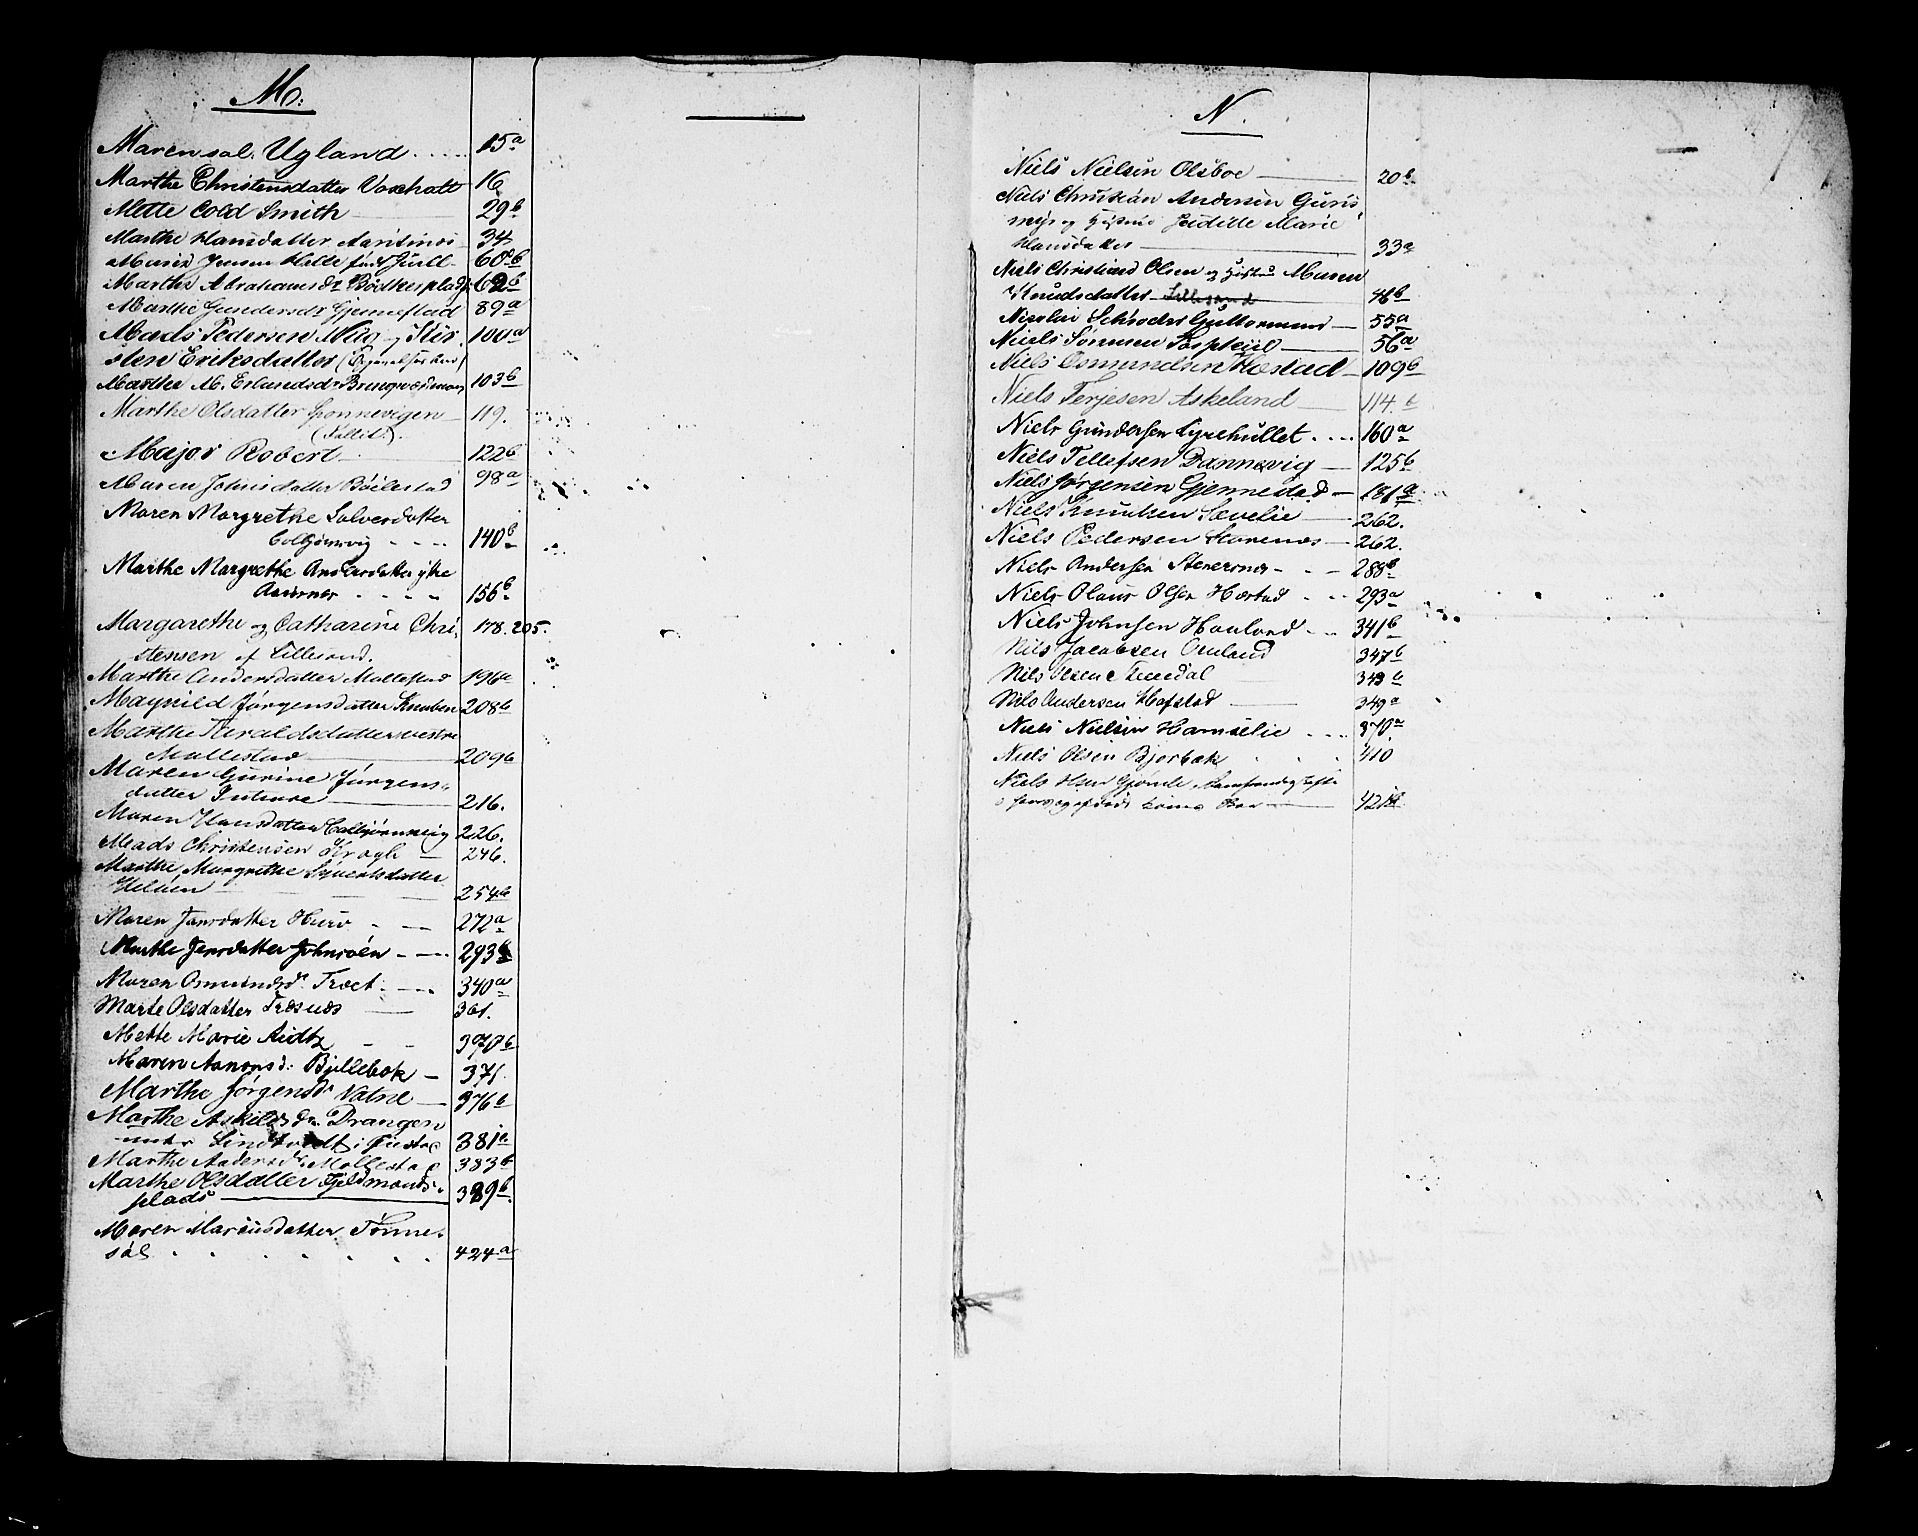 M:
Maren sal. Ugland 15a
Marthe Christensdatter 16
Mette Cold Smith 29b
Marthe Hansdatter 34
Maria Jensen Helle født Juell 60b
Marthe Abrahamsdr Bødkerplads 62b
Marthe Gundersdr Gjennestad 89a
Mads Pedersen og Kir 100a
sten Eriksdatter
Marthe M. Erlandsdr 103b
Marthe Olsdatter 119.
(Fallit).
Major Robert 122b
Maren Johnsdatter Bøilestad 98a
Maren Margrethe Salvesdatter
Calbjørnsvig 140b
Marthe Margrethe Andersdatter
156b
Margarethe og Catharine Chri, 178. 205.
stensen af Lillesand.
Marthe Andersdatter Mollestad 196a
Magnild Jørgensdatter Knaben 208b
Marthe Haraldsdatter vestre
Mollestad 209b
Maren Gurine Jørgens,
datter 216.
Maren Hansdatter Calbjørnsvig 226.
Mads Christensen Kragh 246.
Marthe Margrethe Sivertsdatter
254b
Maren Jensdatter 272a
Marthe Jensdatter 293b
Maren Osmundsdr. Træet 340a
Marte Olsdatter 361.
Mette Marie 370b
Maren Aanonsd. 371.
Marthe Jørgensdr Vatne 376b
Marthe Askildsdr. Drangen
under i 381a
Marthe Andersdr. Mollestad 383b
Marthe Olsdatter Fjeldmands,
plads 389b
Maren Mariusdatter Tønne,
søl 424a
N.
Niels Nielsen Olsboe 20b
Niels Christian Andersen Guris
myr og Hustru Marie
Hansdatter 33a
Niels Christian Olsen og Hustru Maren
Knudsdatter Lillesand 48b
Nicolai Schrøder Guttormsen 55a
Niels Sørensen 56a
Niels Osmundsen Høstad 109b
Niels Terjesen Askeland 114.b
Niels Gundersen 160a
Niels Tellefsen Dannevig 125b
Niels Jørgensen Gjennestad 181a
Niels Knudsen Sævelie 262.
Niels Pedersen Storenes 262.
Niels Andersen 288b
Niels Olaus Olsen Høstad 293a
Niels Johnsen Hauland 341b
Nils Jacobsen 347b
Nils Olsen 349a
Nils Andersen Hofstad 349a
Niels Nielsen Hamselie 370a
Niels Olsen Bjorbak 410
Niels
421b